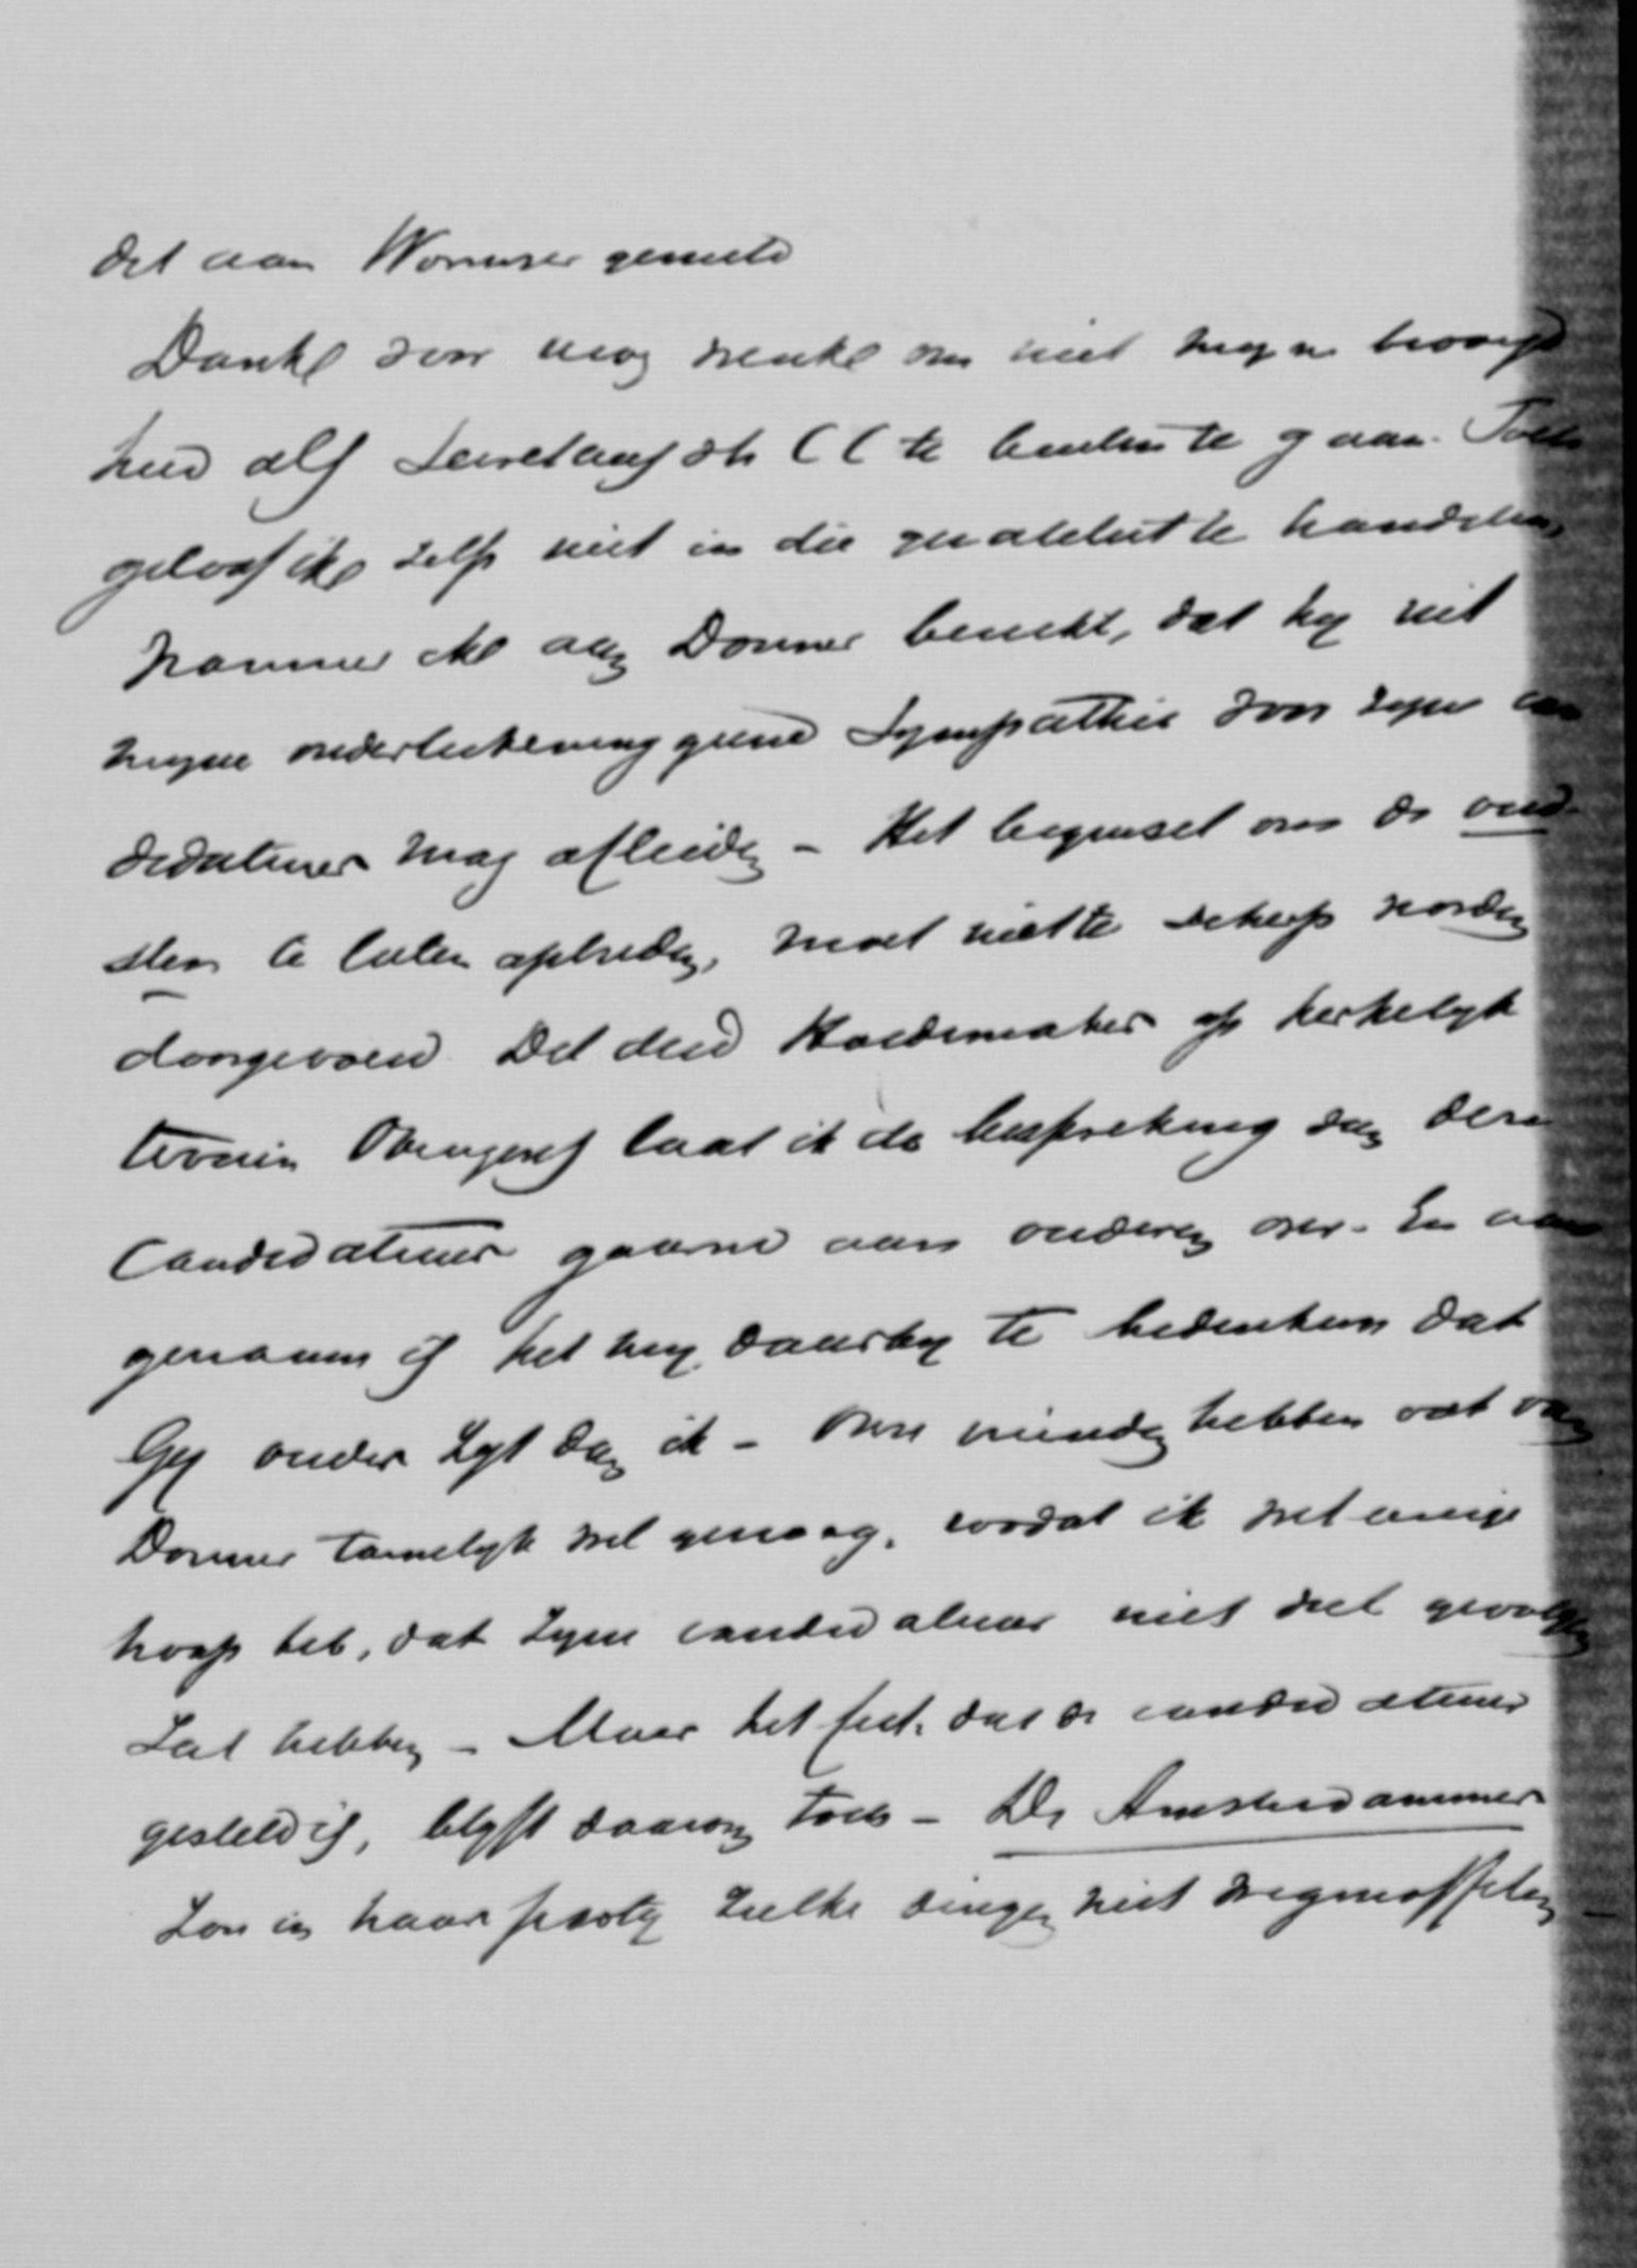 dit aan Wormser gemeld
Dank voor uwe wenk om niet mijn bevoegd
heid als Secretaris v/h CC te buiten te gaan. Toch
geloof ik zelfs niet in die qualiteit te handelen,
wanneer ik aan Donner bericht, dat hij uit
mijne onderteekening geene Sympathie voor zijne can
didatuur mag afleiden - Het beginsel om de oud-
sten te laten optreden, moet niet te scherp worden
doorgevoerd Dat deed Hoedemaker op kerkelijk
terrein Overigens laat ik de bespreking van dere
Candidatuur gaarne aan anderen over. En aan
genaam is het mij daarby te bedenken dat
Gij ouder zijt dan ik - Onze vrienden hebben wat van
Donner tamelijk wel genoeg, zoodat ik wel eenige
hoop heb, dat zijne candidatuur niet veel gevolgen
zal hebben - Maar het feit, dat de candidatuur
gesteld is, blijft daarom toch - De Amsterdammer
zou in haar partij zulke dingen niet wegmoffelen -